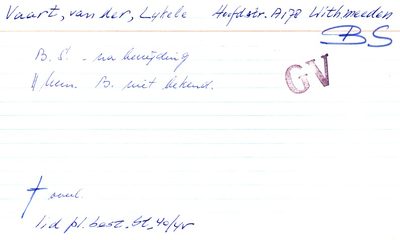 Vaart, van der, Lykele Hoofdstr. A178 Withmeeden
BS
B.S. - na bevrijding
GV
Hem. B. niet bekend.
† overl.
lid pl. best. St. 40/45